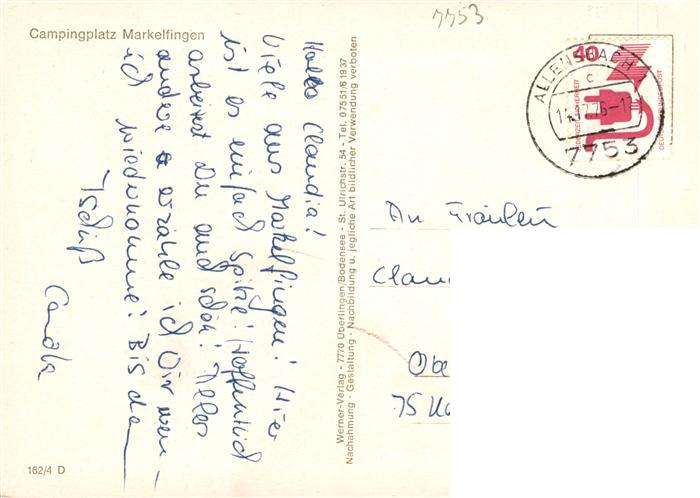 Campingplatz Markelfingen
7753
Hallo Claudia!
Viele aus Markelfingen! Hier
ist es einfach spitze! Hoffentlich
arbeitest Du auch schön! Alles
andere erzähle ich Dir wenn
ich wiederkomme! Bis da
Tschüß
Werner-Verlag - 7770 Überlingen/Bodensee - St. Ulrichstr. 54 - Tel. 07551/61937
Nachahmung - Gestaltung - Nachbildung u. jegliche Art bildlicher Verwendung verboten
40
ALLENSBACH
c
7753
An Fräulein
Clau
Obe
75 Ka
162/4 D